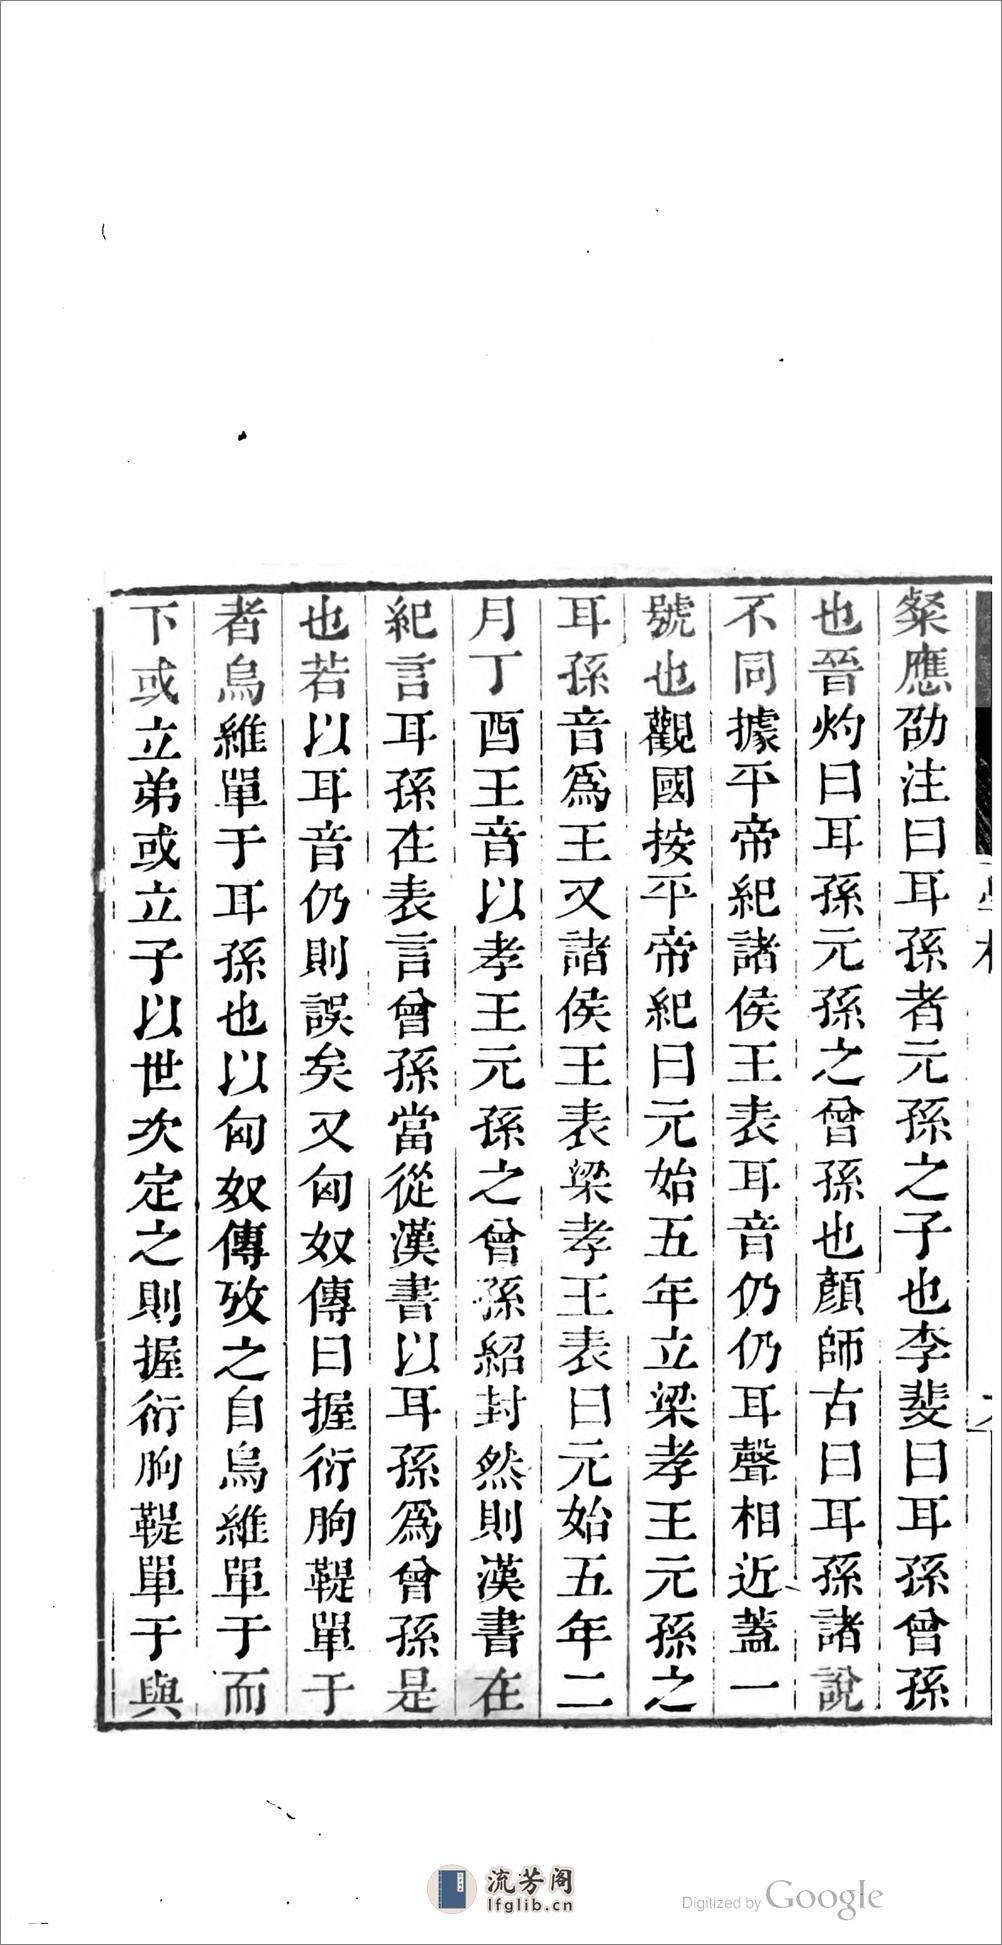 粲應劭注曰耳孫者元孫之子也李斐曰耳孫曾孫
也晉灼曰耳孫元孫之曾孫也顏師古曰耳孫諸說
不同據平帝紀諸侯王表耳音仍仍耳聲相近蓋一
號也觀國按平帝紀曰元始五年立梁孝王元孫之
耳孫音為王又諸侯王表梁孝王表曰元始五年二
月丁酉王音以孝王元孫之曾孫紹封然則漢書在
紀言耳孫在表言曾孫當從漢書以耳孫爲曾孫是
也若以耳音仍則誤矣又匈奴傳曰握衍朐鞮單于
者烏維單于耳孫也以匈奴傳攷之自烏維單于而
下或立弟或立子以世次定之則握衍朐鞮單于與
流芳阁
lfglib.cn
Digitized by Google